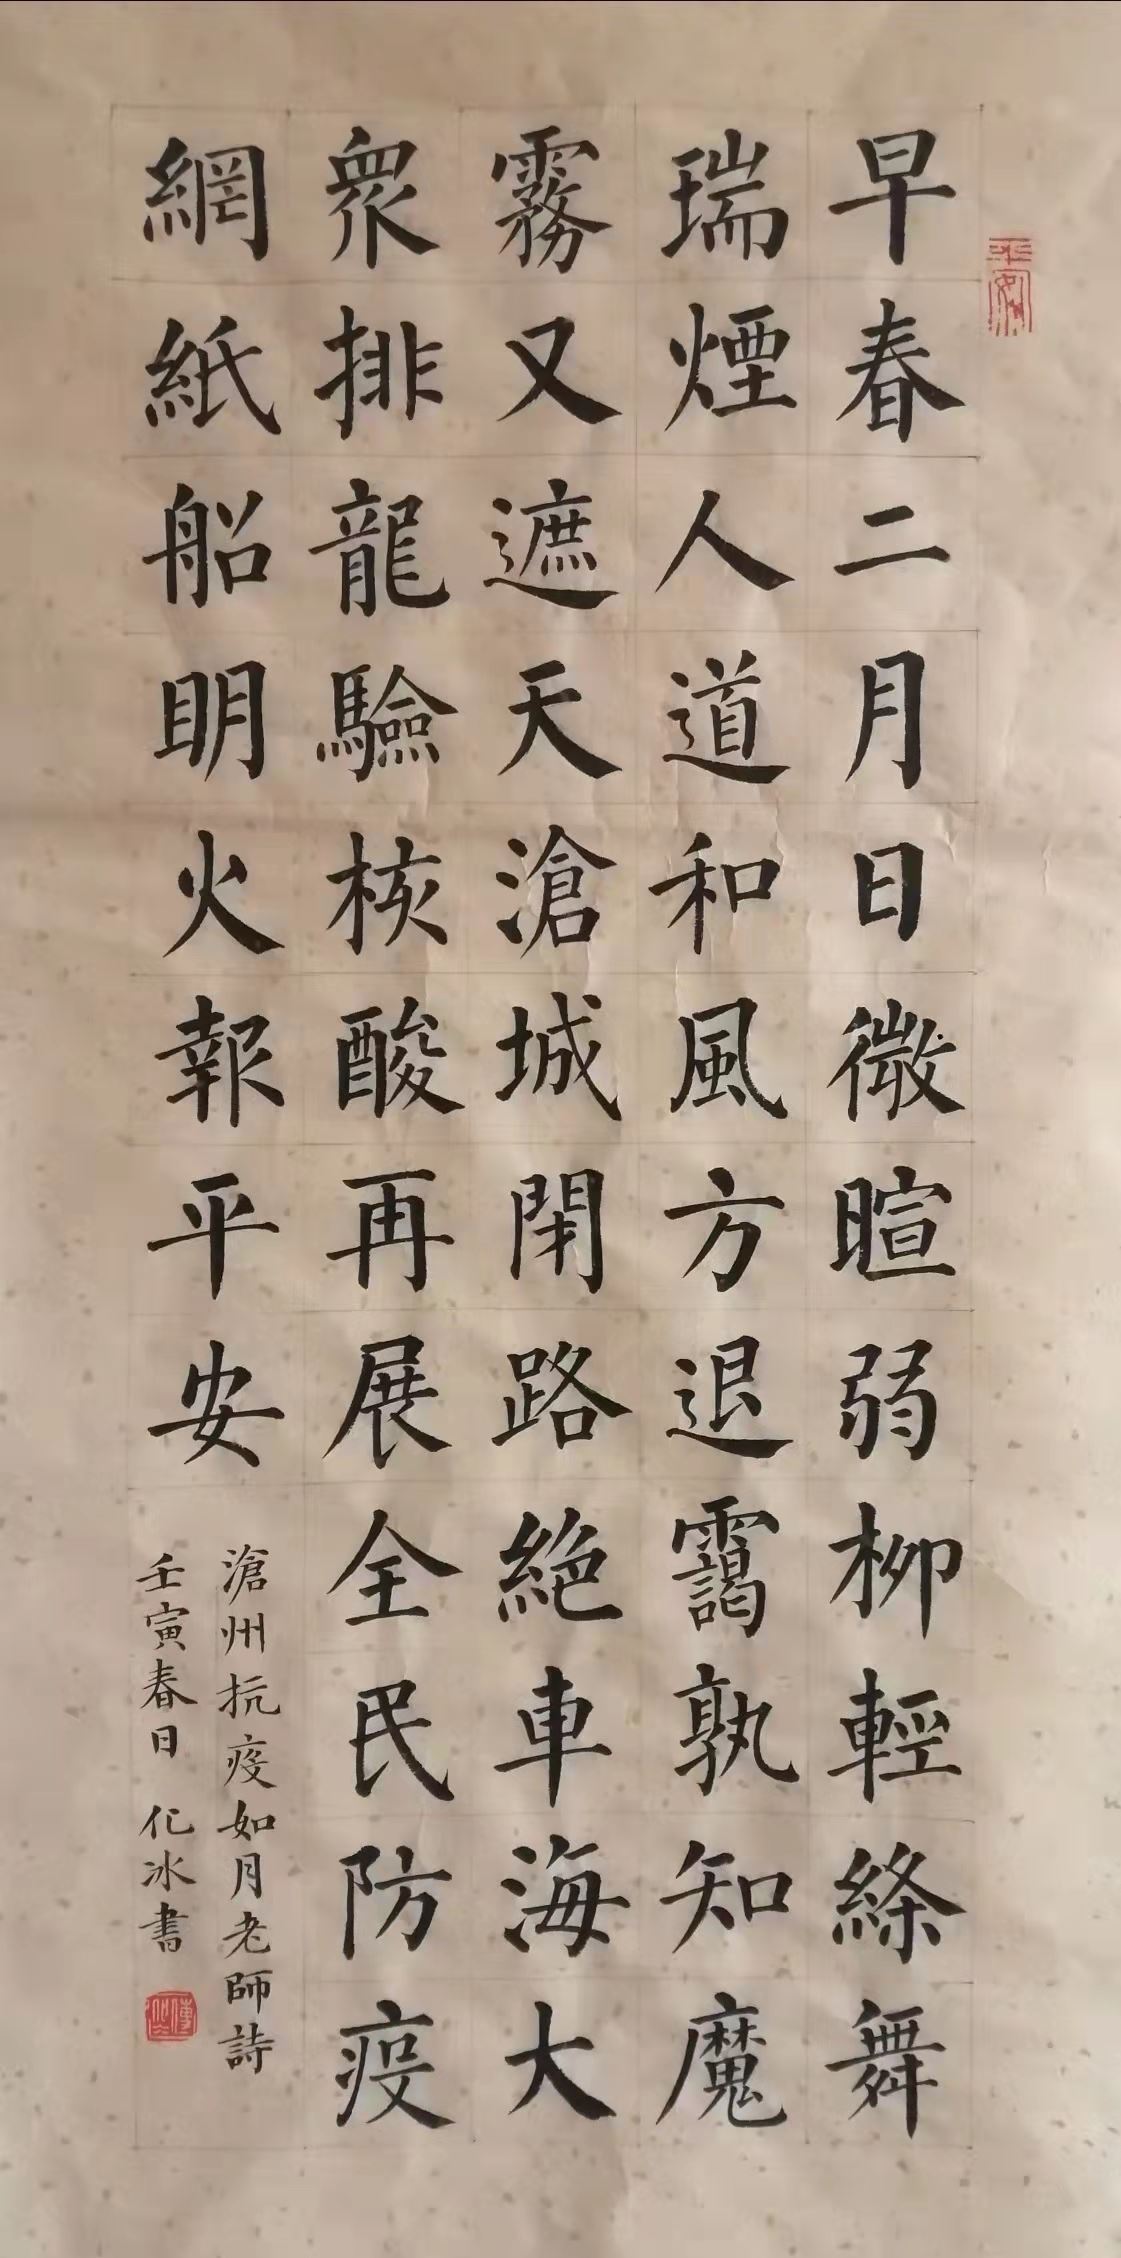 早春二月日微暄弱柳輕絲舞
瑞煙人道和風方退靄孰知魔
霧又遮天滄城閉路絕車海大
眾排龍驗核酸再展全民防疫
網紙船明火報平安
滄州抗疫如月老師詩
壬寅春日化冰書